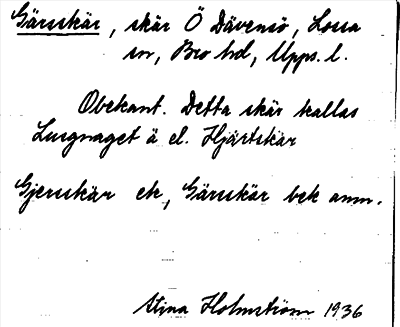 Gärsskär, skär Ö Dävensö, Lossa
sn, Bro hd, Upps. l.
Obekant. Detta skär kallas
Lugnaget ä el. Hjärtskär
Gjersskär ek, Gärsskär bek anm.
Stina Holmström 1936